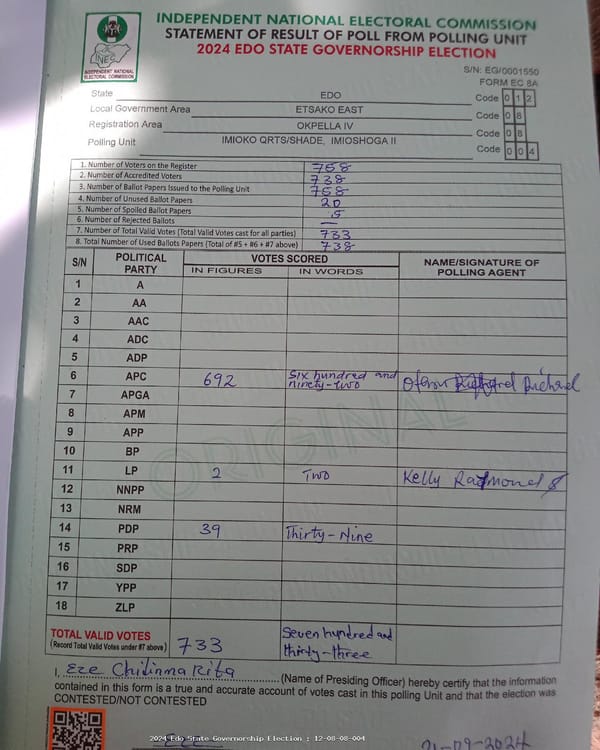 INDEPENDENT NATIONAL ELECTORAL COMMISSION
STATEMENT OF RESULT OF POLL FROM POLLING UNIT
2024 EDO STATE GOVERNORSHIP ELECTION
INEC
INDEPENDENT NATIONAL
ELECTORAL COMMISSION
S/N: EG/0001550
FORM EC 8A
State EDO Code 0 1 2
Local Government Area ETSAKO EAST Code 0 8
Registration Area OKPELLA IV Code 0 8
Polling Unit IMIOKO QRTS/SHADE, IMIOSHOGA II Code 0 0 4
1. Number of Voters on the Register 758
2. Number of Accredited Voters 738
3. Number of Ballot Papers Issued to the Polling Unit 758
4. Number of Unused Ballot Papers 20
5. Number of Spoiled Ballot Papers 5
6. Number of Rejected Ballots —
7. Number of Total Valid Votes (Total Valid Votes cast for all parties) 733
8. Total Number of Used Ballots Papers (Total of #5 + #6 + #7 above) 738
S/N POLITICAL PARTY VOTES SCORED NAME/SIGNATURE OF POLLING AGENT
IN FIGURES IN WORDS
1 A
2 AA
3 AAC
4 ADC
5 ADP
6 APC 692 Six hundred and ninety-two Richard
7 APGA
8 APM
9 APP
10 BP
11 LP 2 Two Kelly
12 NNPP
13 NRM
14 PDP 39 Thirty-Nine
15 PRP
16 SDP
17 YPP
18 ZLP
ORIGINAL
TOTAL VALID VOTES
(Record Total Valid Votes under #7 above) 733 Seven hundred and thirty-three
I, Eze Chidinma Rita (Name of Presiding Officer) hereby certify that the information
contained in this form is a true and accurate account of votes cast in this polling Unit and that the election was
CONTESTED/NOT CONTESTED
2024 Edo State Governorship Election : 12-08-08-004
21-09-2024